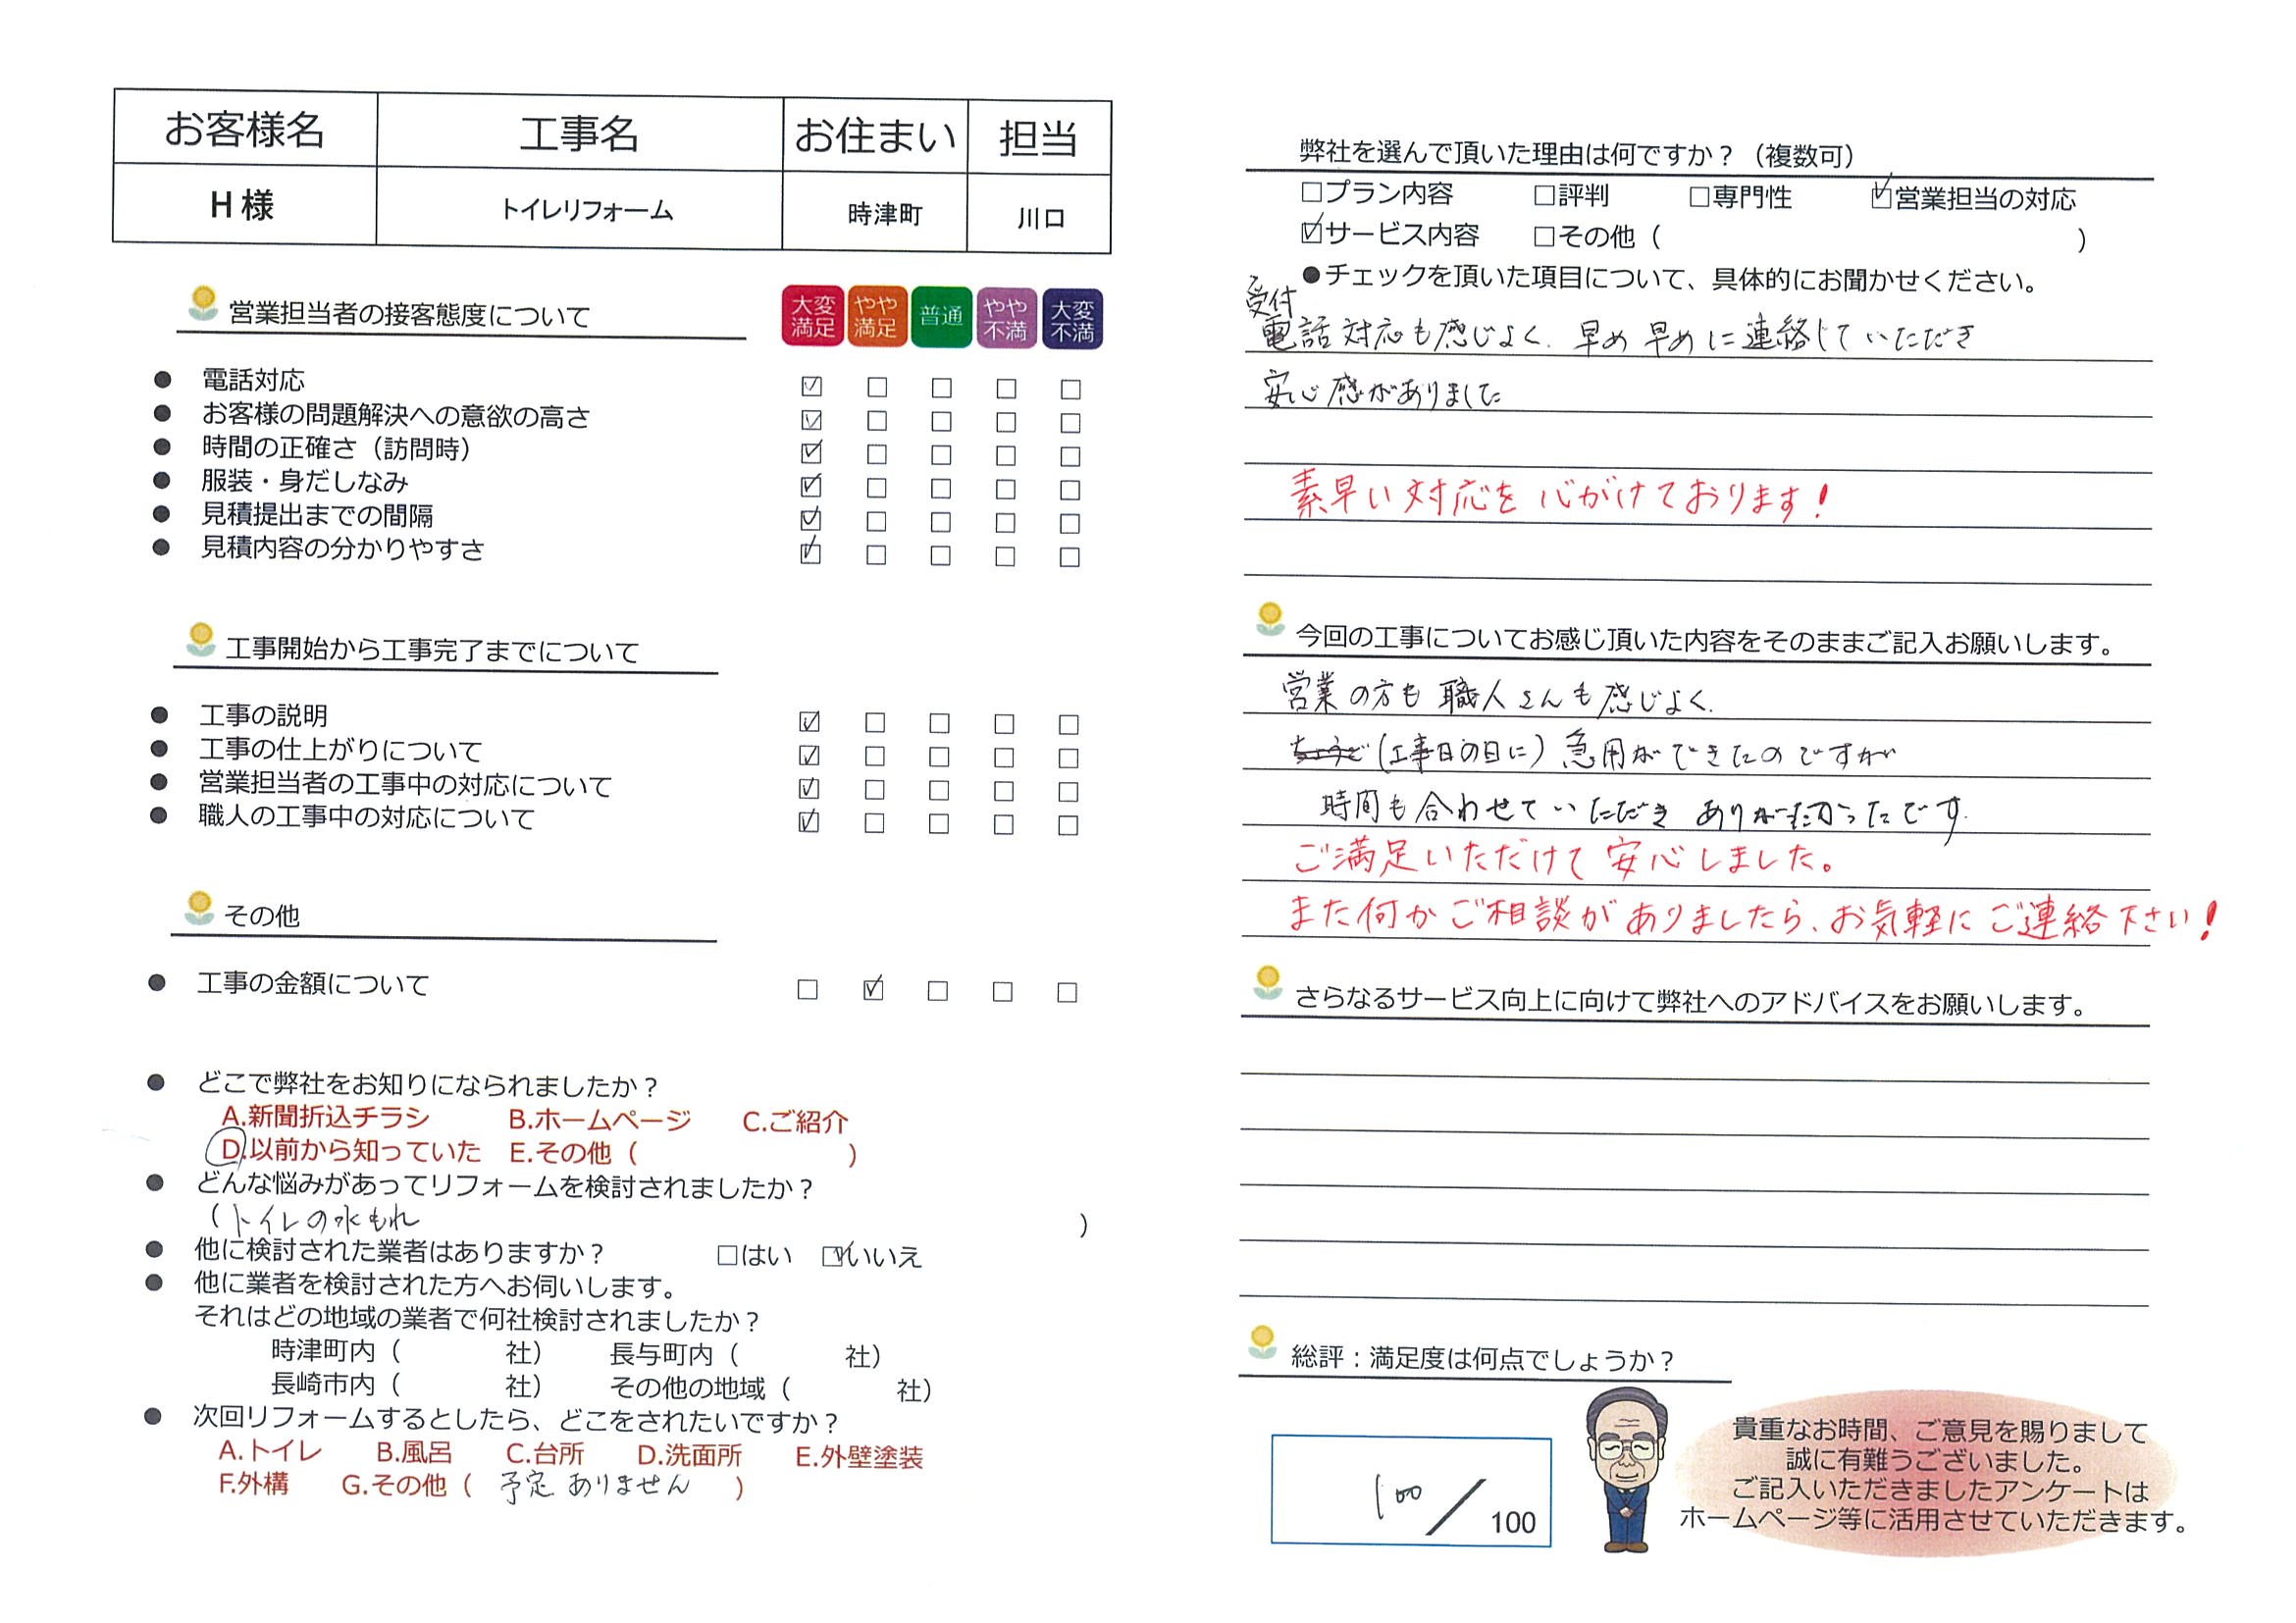 お客様名 工事名 お住まい 担当
H様 トイレリフォーム 時津町 川口
営業担当者の接客態度について
大変満足 やや満足 普通 やや不満 大変不満
● 電話対応 ☑ □ □ □ □
● お客様の問題解決への意欲の高さ ☑ □ □ □ □
● 時間の正確さ（訪問時） ☑ □ □ □ □
● 服装・身だしなみ ☑ □ □ □ □
● 見積提出までの間隔 ☑ □ □ □ □
● 見積内容の分かりやすさ ☑ □ □ □ □
工事開始から工事完了までについて
● 工事の説明 ☑ □ □ □ □
● 工事の仕上がりについて ☑ □ □ □ □
● 営業担当者の工事中の対応について ☑ □ □ □ □
● 職人の工事中の対応について ☑ □ □ □ □
その他
● 工事の金額について □ ☑ □ □ □
● どこで弊社をお知りになられましたか？
A.新聞折込チラシ B.ホームページ C.ご紹介
D.以前から知っていた E.その他（ ）
● どんな悩みがあってリフォームを検討されましたか？
（トイレの水もれ ）
● 他に検討された業者はありますか？ □はい ☑いいえ
● 他に業者を検討された方へお伺いします。
それはどの地域の業者で何社検討されましたか？
時津町内（ 社） 長与町内（ 社）
長崎市内（ 社） その他の地域（ 社）
● 次回リフォームするとしたら、どこをされたいですか？
A.トイレ B.風呂 C.台所 D.洗面所 E.外壁塗装
F.外構 G.その他（ 予定ありません ）
弊社を選んで頂いた理由は何ですか？（複数可）
□プラン内容 □評判 □専門性 ☑営業担当の対応
☑サービス内容 □その他（ ）
●チェックを頂いた項目について、具体的にお聞かせください。
受付
電話対応も感じよく、早め早めに連絡していただき
安心感がありました
素早い対応を心がけております！
今回の工事についてお感じ頂いた内容をそのままご記入お願いします。
営業の方も職人さんも感じよく、
ちょうど（工事日の日に）急用ができたのですが
時間も合わせていただきありがたかったです。
ご満足いただけて安心しました。
また何かご相談がありましたら、お気軽にご連絡下さい！
さらなるサービス向上に向けて弊社へのアドバイスをお願いします。
総評：満足度は何点でしょうか？
100／100
貴重なお時間、ご意見を賜りまして
誠に有難うございました。
ご記入いただきましたアンケートは
ホームページ等に活用させていただきます。